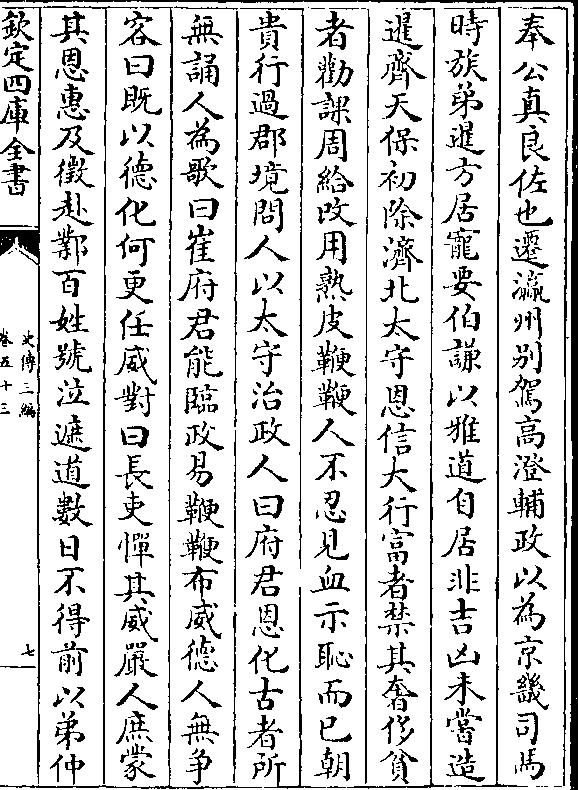 奉公真良佐也遷瀛州别駕高澄輔政以為京畿司馬
時族弟暹方居寵要伯謙以雅道自居非吉凶未嘗造
暹齊天保初除濟北太守恩信大行富者禁其奢侈貧
者勸課周給改用熟皮鞭鞭人不忍見血示恥而已朝
貴行過郡境問人以太守治政人曰府君恩化古者所
無誦人為歌曰崔府君能臨政易鞭鞭布威德人無争
容曰既以德化何更任威對曰長吏憚其威嚴人庶蒙
其恩惠及徵赴鄴百姓號泣遮道數日不得前以弟仲
欽定四庫全書
史傳三編
卷五十三
七